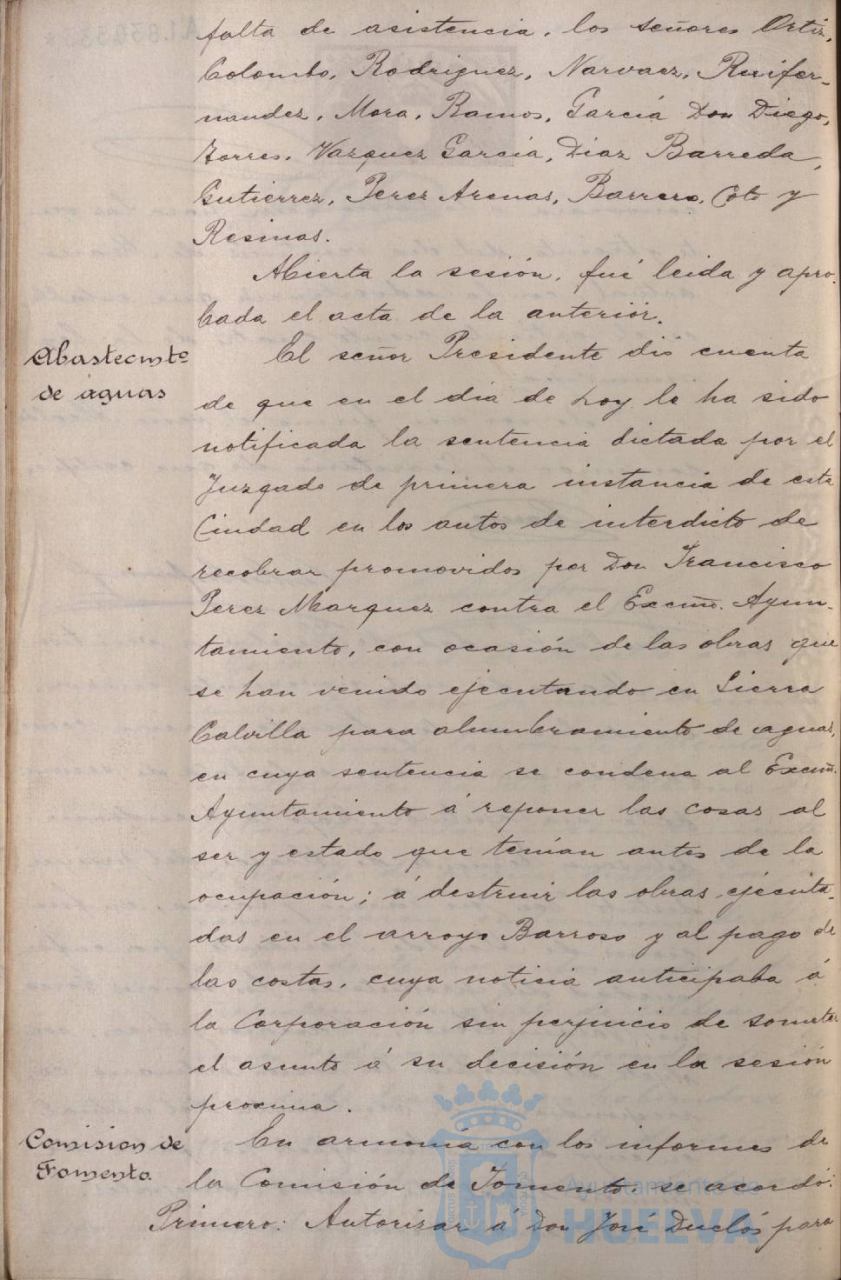 falta de asistencia, los señores Ortiz,
Colombo, Rodriguez, Narvaez, Ruifer-
nandez, Mora, Ramos, García Don Diego,
Torres, Vazquez García, Diaz Barreda,
Gutierrez, Perez Arenas, Barrero, Coto y
Resinas.
Abierta la sesión, fué leida y apro-
bada el acta de la anteriór.
Abastecmto
de aguas
El señor Presidente dió cuenta
de que en el día de hoy le ha sido
notificada la sentencia dictada por el
Juzgado de primera instancia de esta
Ciudad en los autos de interdicto de
recobrar promovidos por Don Francisco
Perez Marquez contra el Excmo. Ayun-
tamiento, con ocasión de las obras que
se han venido ejecutando en Sierra
Calvilla para alumbramiento de aguas,
en cuya sentencia se condena al Excmo.
Ayuntamiento á reponer las cosas al
ser y estado que tenían antes de la
ocupación; á destruir las obras ejecuta-
das en el arroyo Barroso y al pago de
las costas, cuya noticia anticipaba á
la Corporación sin perjuicio de someter
el asunto á su decisión en la sesión
proxima.
Comision de
Fomento.
En armonía con los informes de
la Comisión de Fomento, se acordó:
Primero: Autorizar á Don José Duclós para
Ayuntamiento de
HUELVA